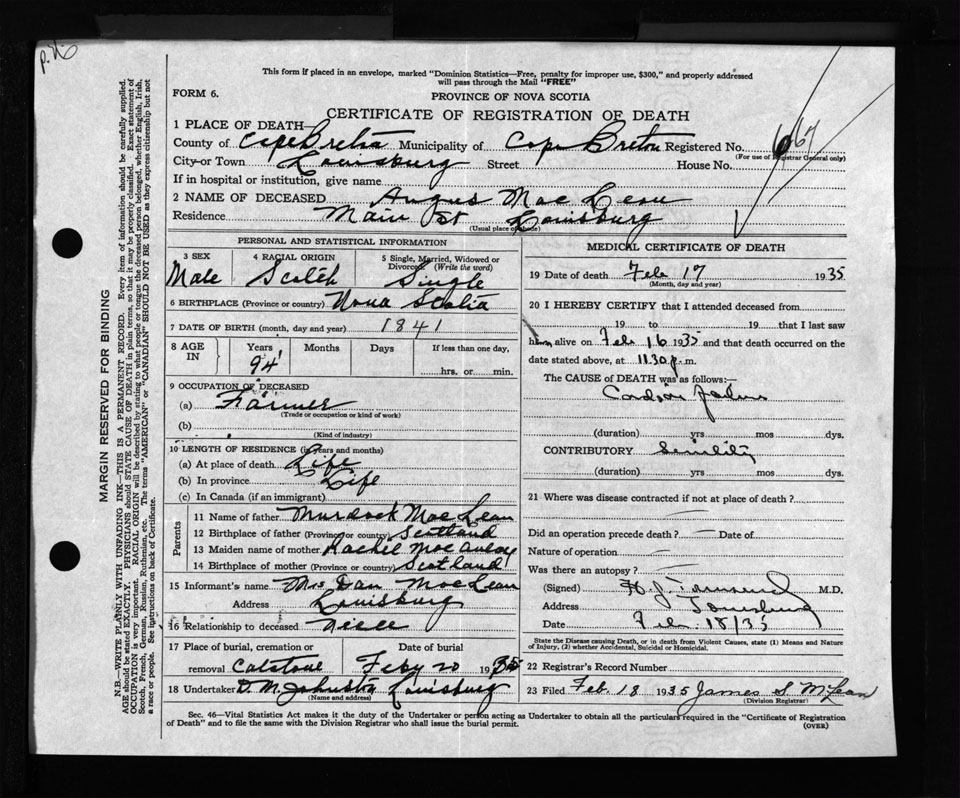 This form if placed in an envelope, marked "Dominion Statistics—Free, penalty for improper use, $300," and properly addressed
will pass through the Mail "FREE"
FORM 6.
PROVINCE OF NOVA SCOTIA
CERTIFICATE OF REGISTRATION OF DEATH
1 PLACE OF DEATH—
County of Cape Breton Municipality of Cape Breton Registered No. 667
(For use of Registrar General only)
City or Town Louisburg Street House No.
If in hospital or institution, give name
2 NAME OF DECEASED Angus MacLean
Residence Main St Louisburg
(Usual place of abode)
PERSONAL AND STATISTICAL INFORMATION
3 SEX Male
4 RACIAL ORIGIN Scotch
5 Single, Married, Widowed or Divorced (Write the word) Single
6 BIRTHPLACE (Province or country) Nova Scotia
7 DATE OF BIRTH (month, day and year) 1841
8 AGE IN Years 94 Months Days If less than one day, hrs. or min.
9 OCCUPATION OF DECEASED
(a) Farmer
(Trade or occupation or kind of work)
(b)
(Kind of industry)
10 LENGTH OF RESIDENCE (in years and months)
(a) At place of death Life
(b) In province Life
(c) In Canada (if an immigrant)
Parents
11 Name of father Murdock MacLean
12 Birthplace of father (Province or country) Scotland
13 Maiden name of mother Rachel MacAulay
14 Birthplace of mother (Province or country) Scotland
15 Informant's name Mrs Dan MacLean
Address Louisburg
16 Relationship to deceased niece
17 Place of burial, cremation or removal Catalone
Date of burial Feby 20 1935
18 Undertaker D. M. Johnston Louisburg
(Name and address)
MEDICAL CERTIFICATE OF DEATH
19 Date of death Feb 17 1935
(Month, day and year)
20 I HEREBY CERTIFY that I attended deceased from
19 to 19 that I last saw
him alive on Feb 16 1935 and that death occurred on the
date stated above, at 11.30 p.m.
The CAUSE of DEATH was as follows:—
(duration) yrs mos dys.
CONTRIBUTORY Senility
(duration) yrs mos dys.
21 Where was disease contracted if not at place of death?
Did an operation precede death? — Date of
Nature of operation —
Was there an autopsy? —
(Signed) M.D.
Address Louisburg
Date Feb. 18/35
State the Disease causing Death, or in death from Violent Causes, state (1) Means and Nature
of Injury, (2) whether Accidental, Suicidal or Homicidal.
22 Registrar's Record Number
23 Filed Feb. 18 1935 James S. McLean
(Division Registrar)
Sec. 46—Vital Statistics Act makes it the duty of the Undertaker or person acting as Undertaker to obtain all the particulars required in the "Certificate of Registration
of Death" and to file the same with the Division Registrar who shall issue the burial permit.
(OVER)
MARGIN RESERVED FOR BINDING
N.B.—WRITE PLAINLY WITH UNFADING INK—THIS IS A PERMANENT RECORD. Every item of information should be carefully supplied.
AGE should be stated EXACTLY. PHYSICIANS should STATE CAUSE OF DEATH in plain terms, so that it may be properly classified. Exact statement of
OCCUPATION is very important. RACIAL ORIGIN will be described by stating to what people or tongue the deceased person belonged, whether English, Irish,
Scotch, French, German, Russian, Ruthenian, etc. The terms "AMERICAN" or "CANADIAN" SHOULD NOT BE USED as they express citizenship but not
a race or people. See instructions on back of Certificate.